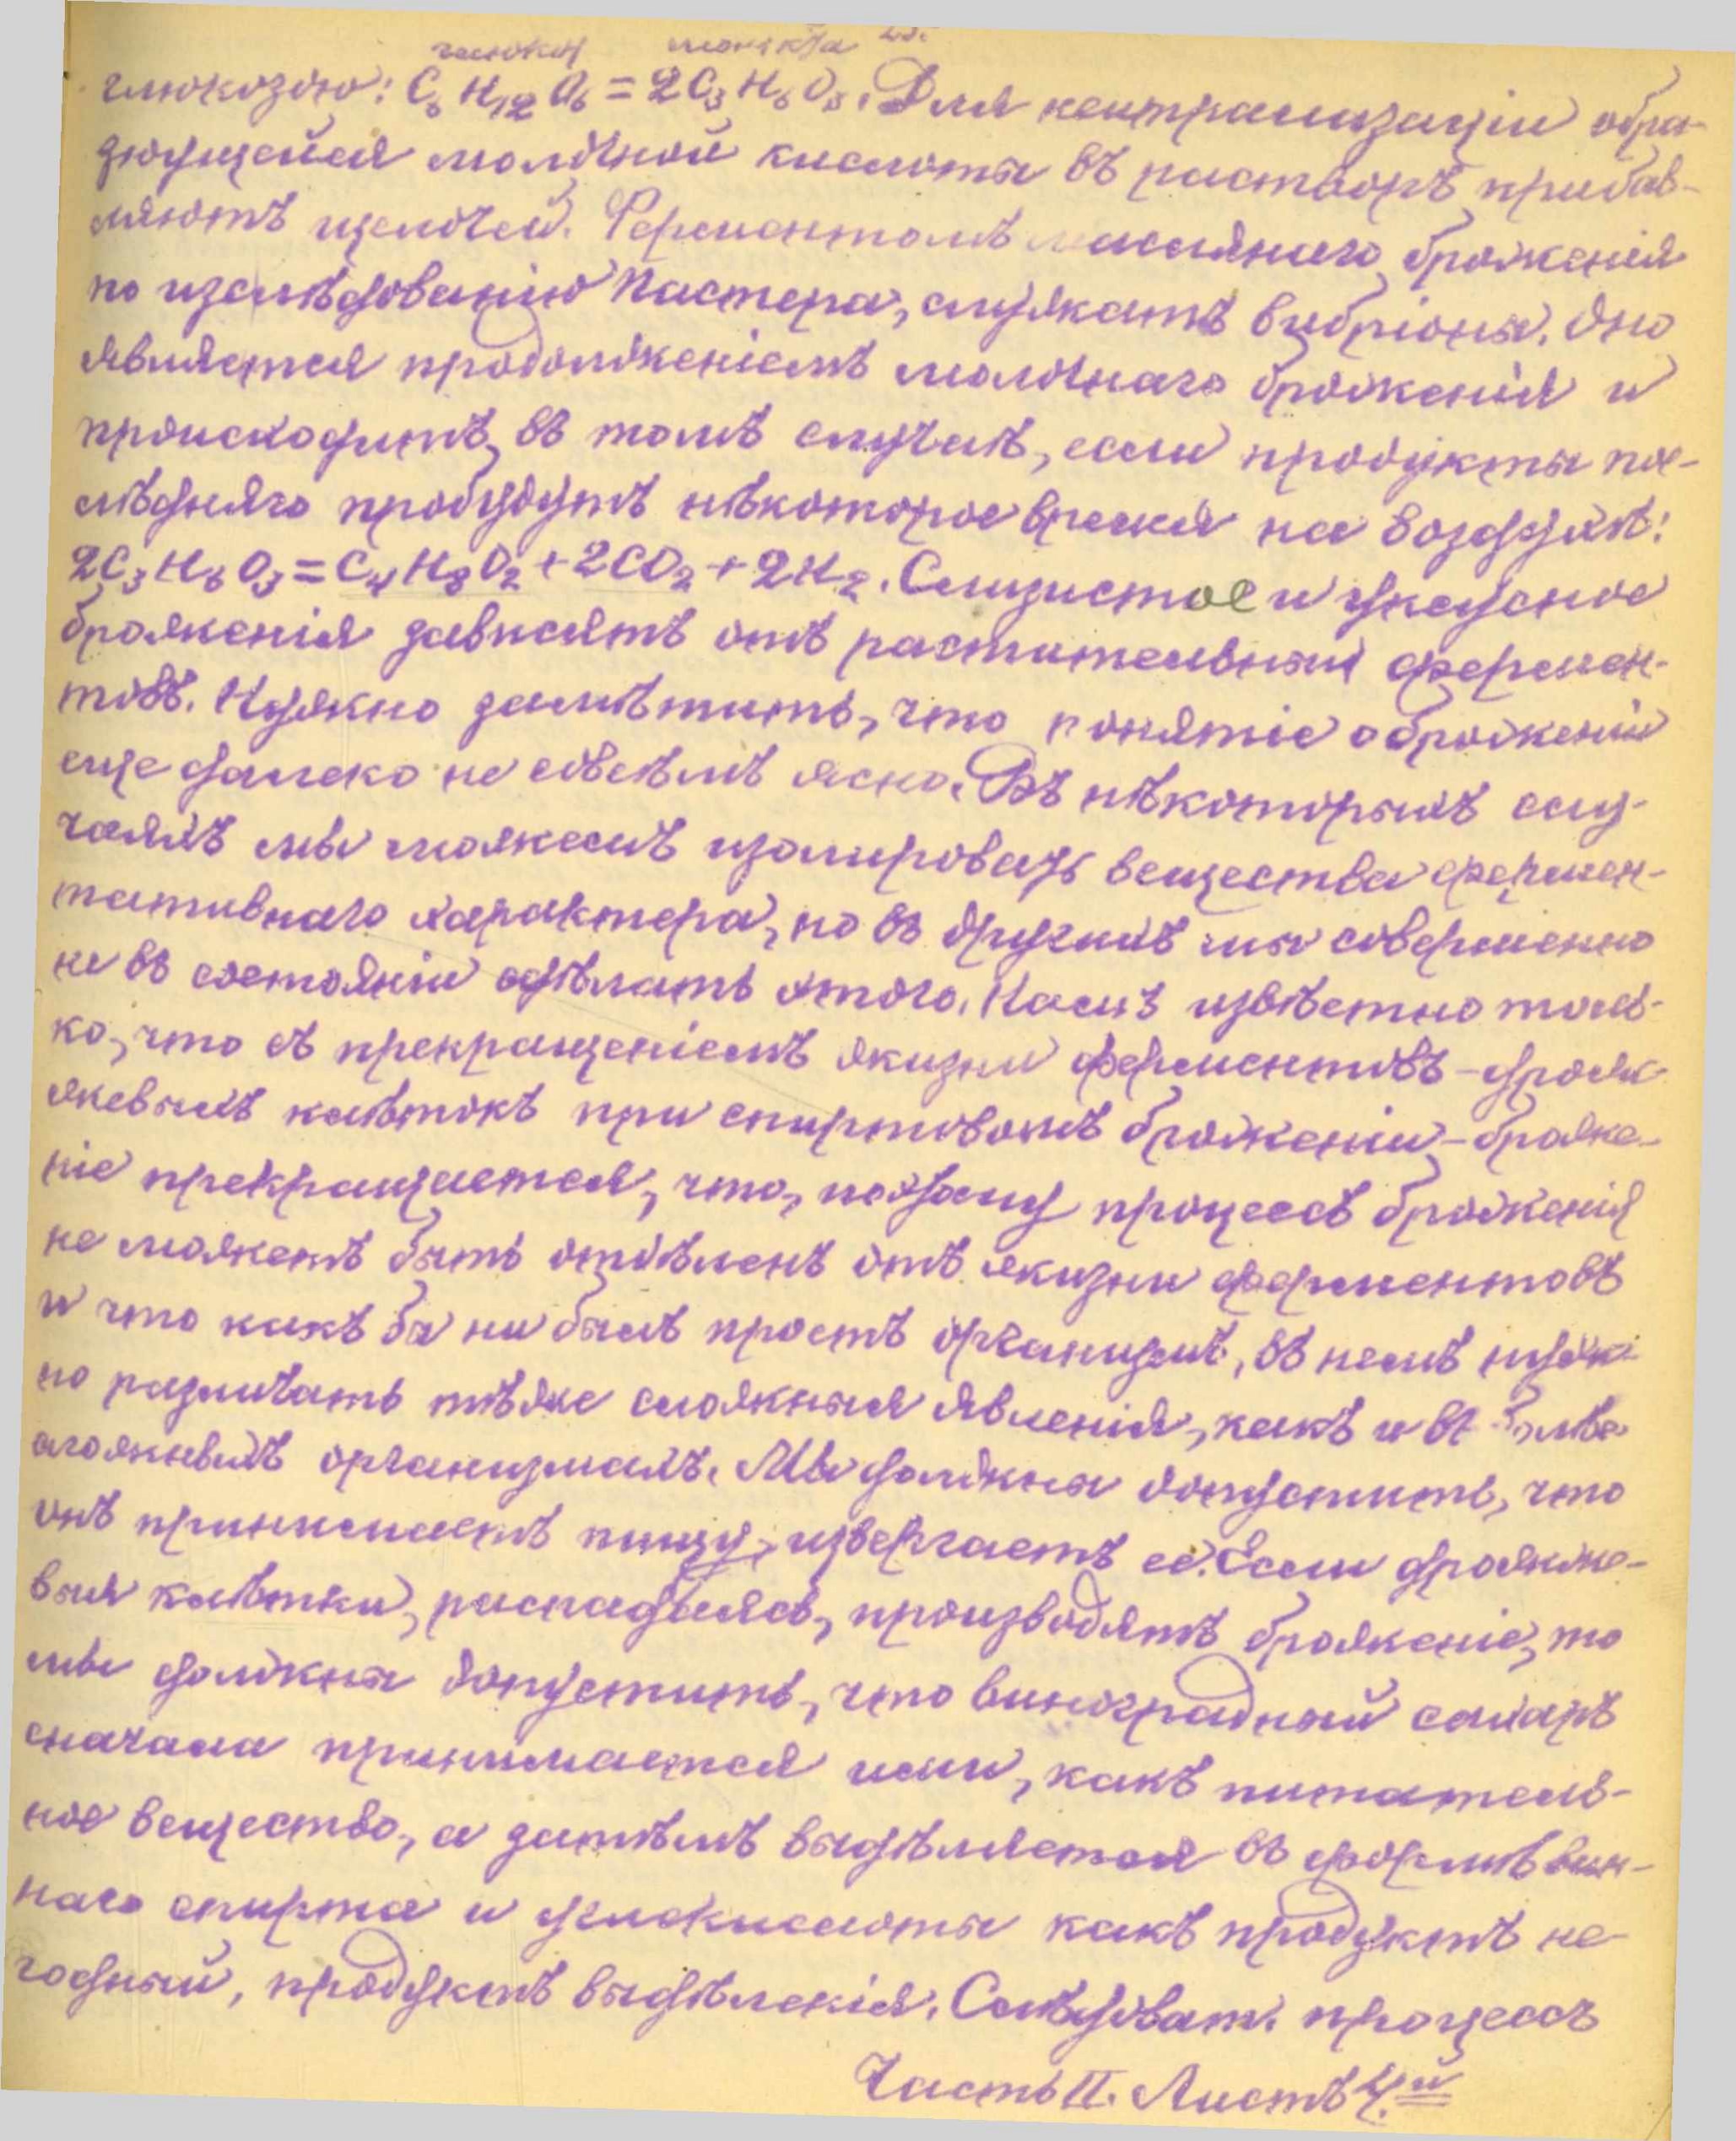 глюкоз
глюкозою: C₆H₁₂O₆ = 2C₃H₆O₃. Для нейтрализаціи обра-
зующейся молочной кислоты въ растворъ прибав-
ляютъ щелочей. Ферментомъ маслянаго броженія
по изслѣдованію Пастера, служатъ вибріоны. Оно
является продолженіемъ молочнаго броженія и
происходитъ въ томъ случаѣ, если продукты по-
слѣдняго пробудутъ нѣкоторое время на воздухѣ:
2C₃H₆O₃ = C₄H₈O₂ + 2CO₂ + 2H₂. Слизистое и уксусное
броженія зависятъ отъ растительных фермен-
товъ. Нужно замѣтить, что понятіе о броженіи
еще далеко не совсѣмъ ясно. Въ нѣкоторыхъ слу-
чаяхъ мы можемъ изолировать вещества фермен-
тативнаго характера, но въ другихъ мы совершенно
не въ состояніи сдѣлать этого. Намъ извѣстно толь-
ко, что съ прекращеніемъ жизни ферментовъ – дрож
жевыхъ клѣтокъ при спиртовомъ броженіи – броже-
ніе прекращается, что, поэтому процессъ броженія
не можетъ быть отдѣленъ отъ жизни ферментовъ
и что какъ бы ни былъ простъ организмъ, въ немъ нуж-
но различать тѣже сложныя явленія, какъ и въ болѣе
сложныхъ организмахъ. Мы должны допустить, что
онъ принимаетъ пищу, извергаетъ ее. Если дрожже-
выя клѣтки, распадаясь, производятъ броженіе, то
мы должны допустить, что виноградный сахаръ
сначала принимается ими, какъ питатель-
ное вещество, а затѣмъ выдѣляется въ формѣ вин-
наго спирта и углекислоты какъ продуктъ не-
годный, продуктъ выдѣленія. Слѣдоват. процессъ
Часть II. Листъ 4.й